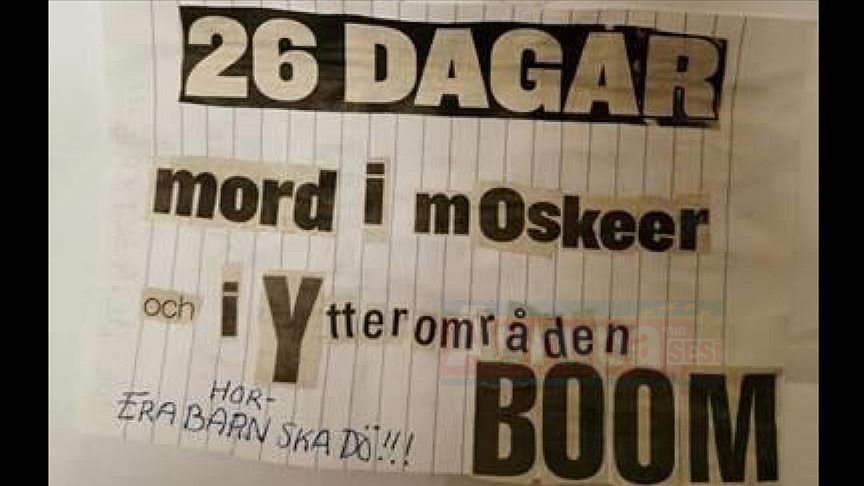 26 DAGAR
mord i mOskeer
och i Ytterområden
BOOM
HOR-
ERA BARN SKA DÖ!!!
SESİ